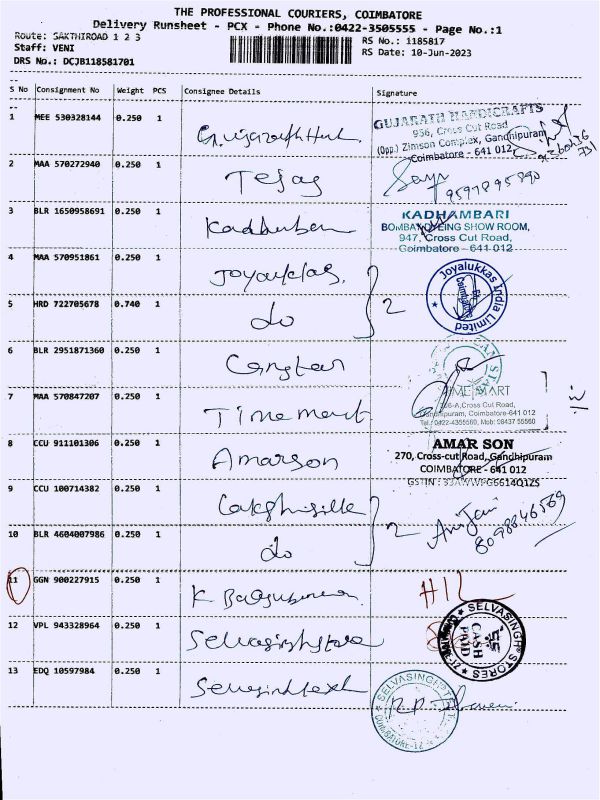 THE PROFESSIONAL COURIERS, COIMBATORE
Delivery Runsheet - PCX - Phone No.:0422-3505555 - Page No.:1
Route: SAKTHIROAD 1 2 3
RS No.: 1185817
Staff: VENI
RS Date: 10-Jun-2023
DRS No.: DCJB118581701
S No Consignment No Weight PCS Consignee Details Signature
1 MEE 530328144 0.250 1
GUJARATH HANDICRAFTS
956, Cross Cut Road
(Opp.) Zimson Complex, Gandhipuram
Coimbatore - 641 012
2 MAA 570272940 0.250 1 Tejas
9597895890
3 BLR 1650958691 0.250 1
KADHAMBARI
BOMBAY DYEING SHOW ROOM,
947, Cross Cut Road,
Coimbatore - 641 012
4 MAA 570951861 0.250 1 Joyalukkas. 2
Joyalukkas India Limited
Coimbatore
5 HRD 722705678 0.740 1 do
6 BLR 2951871360 0.250 1
7 MAA 570847207 0.250 1 Time mart
TIME MART
-A, Cross Cut Road,
Gandhipuram, Coimbatore-641 012
Tel.: 0422-4355560, Mob: 98437 55560
8 CCU 911101306 0.250 1 Amarson
AMAR SON
270, Cross-cut Road, Gandhipuram
COIMBATORE - 641 012
GSTIN : 33AWWPG6614Q1ZS
9 CCU 100714382 0.250 1 2
8098846569
10 BLR 4604007986 0.250 1 do
11 GGN 900227915 0.250 1
12 VPL 943328964 0.250 1
SELVASINGH STORES
CASH PAID
13 EDQ 10597984 0.250 1
SELVASINGH
COIMBATORE-12